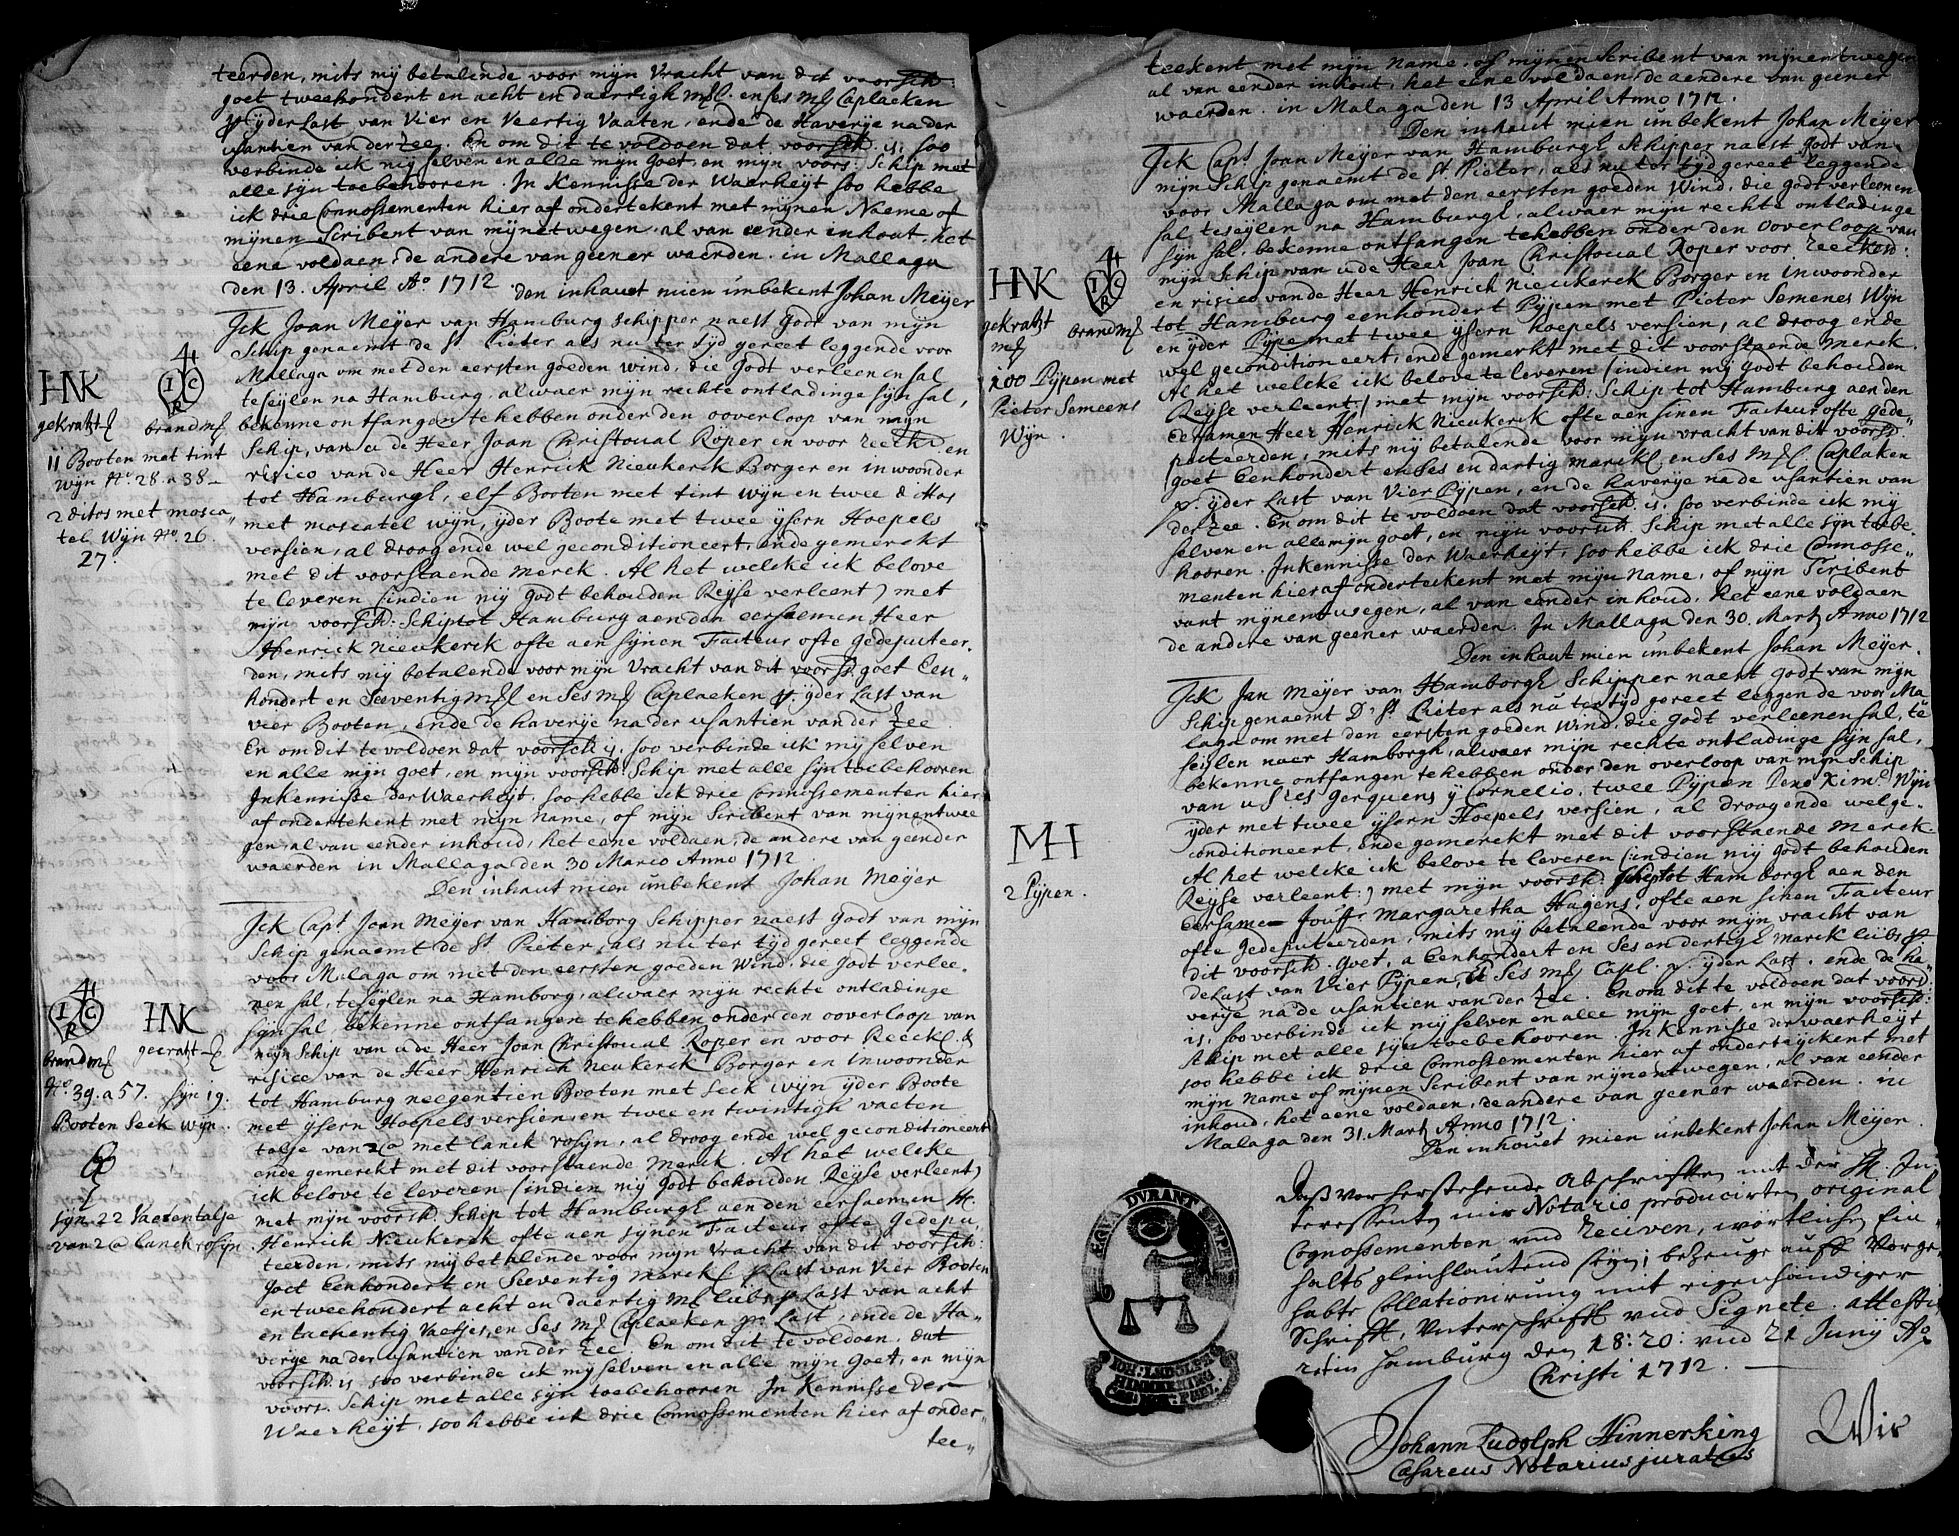 teerden, mits my betalende voor mijn Vracht van dit voorsch:
goet tweehondert en acht en daertigh m&l. en ses m& Caplaeken
p yder Last van Vier en Veertig Vaaten, ende de Haverije na der
usantien van der zee. En om dit te voldoen dat voorsch. is, soo
verbinde ick mij selven en alle mijn goet, en mijn voors: Schip met
alle syn toebehooren. In Kennisse der Waerheyt soo hebbe
ick drie Connossementen hier af ondertekent met mynen Naeme of
mijnen Scribent van mijnetwegen, al van eender inhout, het
eene voldaen, de andere van geener waerden. in Mallaga
den 13. April Ao. 1712. den inhaut mien imbekent Johan Meÿer
Ick Joan Meÿer van Hamburg schipper naest Godt van mijn
Schip genaemt de St Pieter als nu ter tyd gereet leggende voor
Mallaga om met den eersten goeden wind, die Godt verleenen sal
teseÿlen na Hamburg, alwaer mijn rechte ontladinge sÿn sal,
bekenne ontfangen te hebben onder den ooverloop van mijn
Schip, van u de Heer Joan Christoual Röper en voor reeck. en
risico van de Heer Henrick Nieukerck Borger en inwoonder
tot Hamburgh, elf Booten met tint wÿn en twee ditos
met moscatel wÿn, ÿder Boote met twee ÿsern Hoepels
versien, al droog ende wel geconditioneert, ende gemerckt
met dit voorstaende merck. Al het welcke ick belove
te leveren (indien mÿ Godt behouden Reÿse verleent) met
mijn voorsch. Schip tot Hamburg aen den eersaemen Heer
Henrick Nieukerck ofte aen sÿnen Facteur ofte gedeputeer-
den, mits mÿ betalende voor mijn Vracht van dit voorsch. goet Een„
hondert en Seeventig m&l en Ses m& Caplaeken p ÿder Last van
veer Booten, ende de haverije na der usantien van der zee
En om dit te voldoen dat voorsch is, soo verbinde ick mÿ selven
en alle mijn goet, en mijn voorsch: Schip met alle sÿn toebehooren
In kennisse der Waerheÿt, soo hebbe ick drie Connossementen hier
af ondertekent met mijn name, of mijn Scribent van mijnentwee
gen, al van eender inhoud, het eene voldaen, de andere van geender
waerden in Mallaga den 30 Marco Anno 1712
Den inhaut mien imbekent Johan Meÿer
Ick Capt. Joan Meÿer van Hamborg Schipper naest Godt van mijn
Schip genaemt de St Pieter, als nu ter tÿd gereet leggende
voor Malaga om met den eersten goeden Wind, die Godt verlee-
nen sal, teseÿlen na Hamborg, alwaer mijn rechte ontladinge
sÿn sal, bekenne ontfangen te hebben onder den ooverloop van
mijn Schip van u de Heer Joan Christoual Roper en voor Reeck. &
risico van de Heer Henrick Neukerck Borger en Inwoonder
tot Hamburg neegentien Booten met seck wÿn ÿder Boote
met ÿsern Hoepels versien, en twee en twintigh vaeten
talje van 2@ met lanck rosÿn, al droog ende wel geconditioneert
ende gemerckt met dit voorstaende merck. Al het welcke
ick belove te leveren (indien mÿ Godt behouden Reÿse verleent)
met mijn voorsch Schip tot Hamburgh aen den eersaemen H:
Henrich Nieukerck ofte aen sÿnen Facteur ofte Gedepu„
teerden, mits mÿ betalende voor mijn Vracht van dit voorsch:
Goet Eenhondert en Seeventig marck& p Last van Vier Booten
en tweehondert acht en daertig m& lubs p Last van acht
en tachentig Vaetjes, en Ses m& Caplaeken pr. Last, ende de Ha„
verije na der usantien van der zee. En om dit te voldoen, dat
voorsch. is soo verbinde ick mÿ selven en alle mijn Goet, en mijn
voors. Schip met alle sÿn toebehooren In Kennisse der
Waerheÿt, soo hebbe ick drie Connossementen hier af onder„
tee„
HNK I C R
gekratzt& brandm&
11 Booten met tint
wijn No. 28 a 38
2 ditos met mosca„
tel Wÿn No. 26.
27.
I C R HNK
brandm& gecratzt
No. 39. a 57. sÿn 19.
Booten Seck wÿn.
sÿn 22 Vaeten talje
van 2@ lanck rosÿn.
teekent met mijn name, of mijnen Scribent van mijnentwegen
al van eender inhout, het eene voldaen de aendere van geener
waerden. in Malaga den 13 April Anno 1712.
Den inhaut mien imbekent Johan Meÿer
Ick Capt. Joan Meÿer van Hamburgh Schipper naest Godt van
mijn Schip genaemt de St. Pieter, als nu tor tÿd gereet leggende
voor Mallaga om met den eersten goeden Wind, die Godt verleenen
sal, teseÿlen na Hamburgh, alwaer mijn rechte ontladinge
sÿn sal, bekenne ontfangen tehebben onder den Ooverloop van
mijn Schip van u de Heer Joan Christoual Roper voor reecken.
en risico van de Heer Henrich Nieukerck Borger en Inwoonder
tot Hamburg eenhondert Pÿpen met Pieter Semenes Wÿn
en ÿder Pÿpe met twee ÿsern hoepels versien, al droog ende
wel geconditioneert, ende gemerkt met dit voorstaende merck.
Al het welcke ick belove te leveren (indien mÿ Godt behouden
Reÿse verleent:) met mijn voorsch: Schip tot Hamburg aen den
eersamen Heer Henrick Nieukerck ofte aen sinen Facteur ofte Gede„
puteerden, mits mÿ betalende voor mijn vracht van dit voorsch.
goet Eenhondert en Ses en dartig marck& en Ses m&l Caplaken
p. ÿder Last van Vier Pÿpen, en de haverje na de usantien van
der Zee. En om dit te voldoen dat voorsch. is, soo verbinde ick mÿ
selven en alle mijn goet, en mijn voorsch. Schip met alle sÿn toebe-
hooren. In kennisse der Waerheÿt, soo hebbe ick drie Connosse„
menten hier af ondertekent met mijn Name, of mijn Scribent
vant mijnentwegen, al van eender inhoud, het eene voldaen
de andere van geener waerden. In Mallaga den 30. Martz Anno 1712
Den inhaut mien imbekent Johan Meÿer.
Ick Jan Meÿer van Hamborgh Schipper naest Godt van mijn
Schip genaemt D. St. Pieter als nu ter tÿd gereet leggende voor Ma
laga om met den eersten goeden Wind, die Godt verleenen sal, te
seilen naer Hamborgh, alwaer mijn rechte ontladinge sÿn sal,
bekenne ontfangen te hebben onder den overloop van mijn Schip
van u Srs Gerquens ÿ Cornelio, twee Pÿpen Pero Xim.s Wÿn
ÿder met twee ÿsern Hoepels versien, al droog ende welge-
conditioneert, ende gemerckt met dit voorstaende merck
Al het welcke ick belove te leveren (indien mÿ Godt behouden
Reÿse verleent:) met mijn voorsch. schip tot Hamborgh aen den
Eersame Jouffr. Margaretha Hagens, ofte aen sinen Facteur
ofte gedeputeerden, mits mÿ betalende voor mijn vracht van
dit voorsch. Goet, a Eenhondert en Ses en dertigh marck lubs p
de Last van Vier Pÿpen, & Ses m& Capl. p. ÿder Last. ende de ha„
verije na de usantien van der Zee. En om dit te voldoen dat voorsch:
is, soo verbinde ick mÿ selven en alle mijn goet, en mijn voorsch:
schip met alle sÿn toebehooren. In Kennisse der waerheÿt
soo hebbe ick drie Connossementen hier af onderteÿckent met
mijn Name of mijnen Scribent van mijnentwegen, al van eender
inhoud, het eene voldaen, de andere van geener waerden. in
Malaga den 31. Martz Anno 1712.
Den inhouet mien imbekent Johan Meÿer.
HNK I C R
gekratzt brandm&
m&
100 Pÿpen met
Pieter Semeens
Wÿn.
MH
2 Pÿpen.
Daß vorherstehende Abschrifften mit der H. In„
teressenten mir Notario producirten original
Cognossementen und Recÿven, wörtlichen Ein„
halts gleichlautend seyn; bezeuge auff Vorge„
habte Collationirung mit eigenhändiger
Schrifft, Unterschrifft und Signete. attesti
ret in Hamburg den 18: 20: und 21 Junÿ Ao.
Christi 1712.
Johann Ludolph Hinnerking
Cæsareus Notarius juratus
Wir
DVRANT SEMPER
IOH: LUDOLPH
HINNERKING
NOT: PUBL.